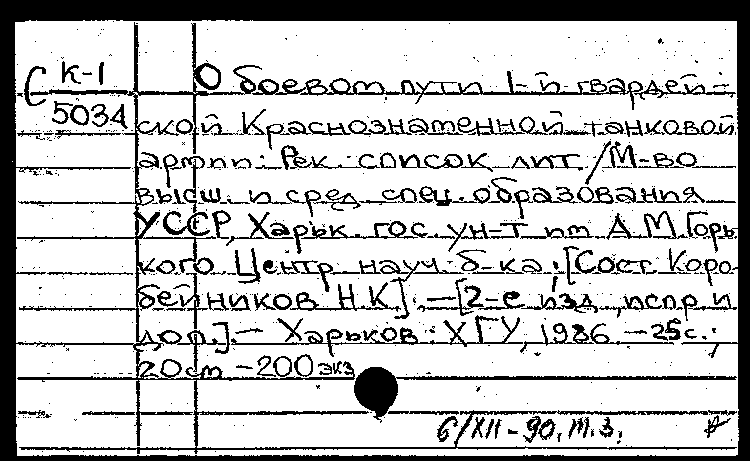 С К-1
5034
О боевом пути 1-й гвардей-
ской Краснознаменной танковой
армии: Рек. список лит. / М-во
высш. и сред. спец. образования
УССР, Харьк. гос. ун-т им А.М.Горь
кого Центр науч. б-ка; [Сост Коро-
бейников Н.К]. – [2-е изд, испр. и
доп.]. – Харьков : ХГУ, 1986. – 25с.;
20см – 200 экз
6/XII-90. т.з.